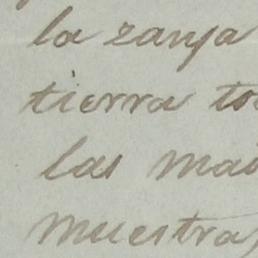 la zanja
tierra to
las mai
muestra,